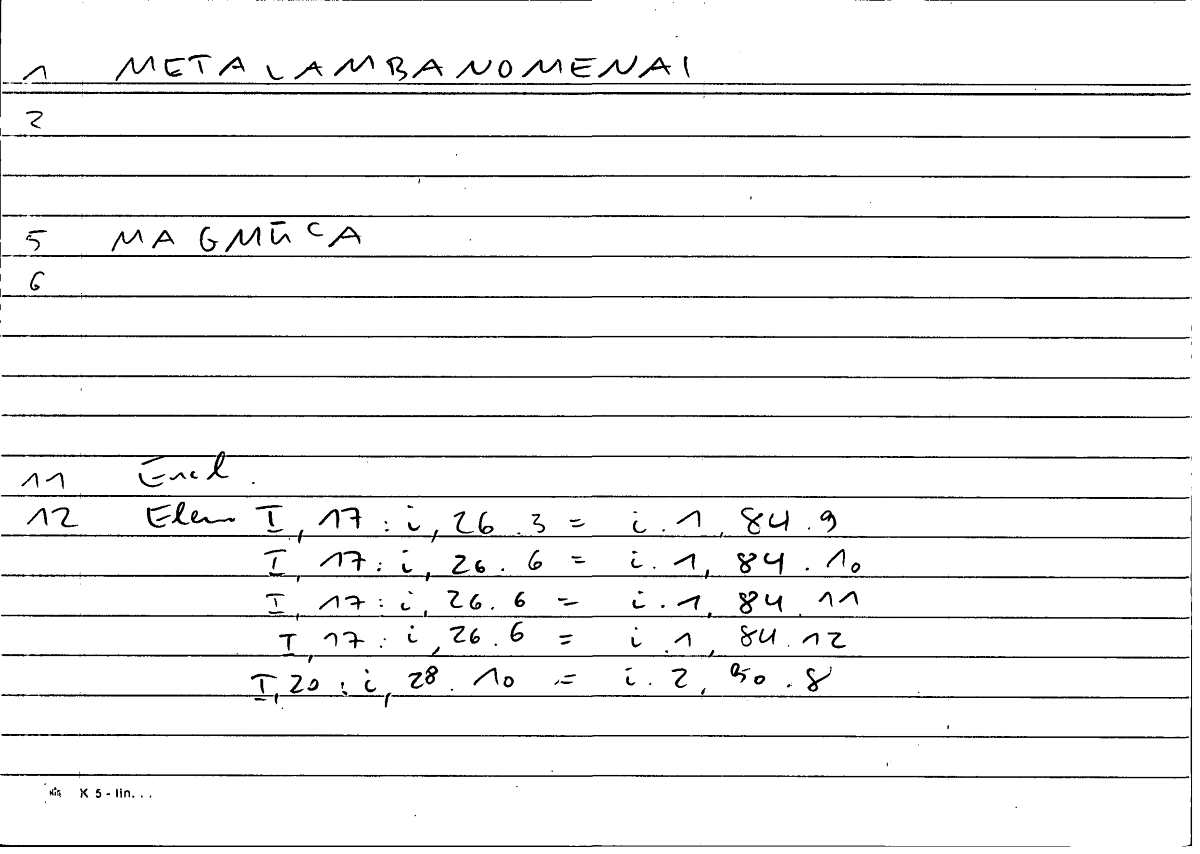 1 METALAMBANOMENAI
2
5 MAGMŪCA
6
11 Eucl.
12 Elem I, 17 : i, 26.3 = i.1, 84.9
I, 17 : i, 26.6 = i.1, 84.10
I, 17 : i, 26.6 = i.1, 84.11
I, 17 : i, 26.6 = i.1, 84.12
I, 20 : i, 28.10 = i.2, 90.8
K 5 - lin...